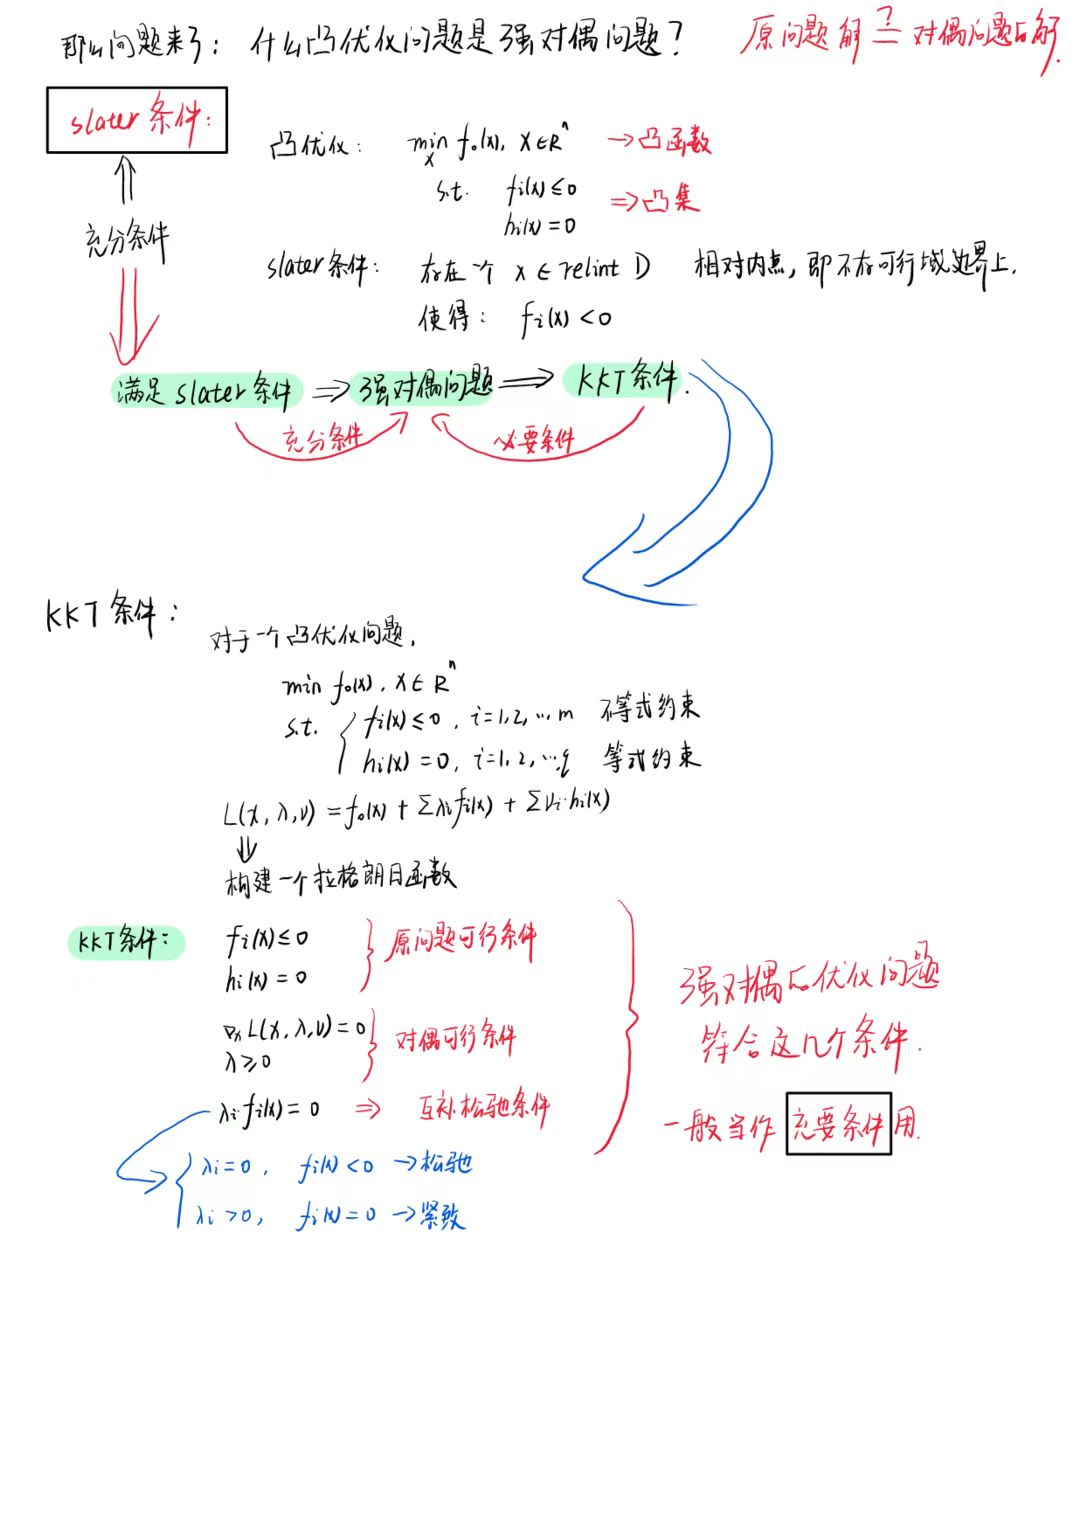 那么问题来了： 什么凸优化问题是强对偶问题？ 原问题解 ?= 对偶问题的解.
slater 条件:
凸优化： min f₀(x), x∈Rⁿ →凸函数
x
s.t. fi(x)≤0 ⇒凸集
hi(x)=0
充分条件
slater条件： 存在一个 x∈relint D 相对内点，即不在可行域边界上.
使得： fi(x)<0
满足 slater 条件 ⇒ 强对偶问题 ⇒ KKT 条件.
充分条件 必要条件
KKT 条件：
对于一个凸优化问题,
min f₀(x), x∈Rⁿ
s.t. { fi(x)≤0, i=1,2,…m 不等式约束
hi(x)=0, i=1,2,…q 等式约束
L(x,λ,ν)=f₀(x)+Σλifi(x)+Σνi·hi(x)
⇓
构建一个拉格朗日函数
KKT条件: fi(x)≤0
hi(x)=0 } 原问题可行条件
∇x L(x,λ,ν)=0
λ≥0 } 对偶可行条件
λi fi(x)=0 ⇒ 互补松驰条件
λi=0, fi(x)<0 →松驰
λi>0, fi(x)=0 →紧致
强对偶的优化问题
符合这几个条件.
一般当作 充要条件 用.